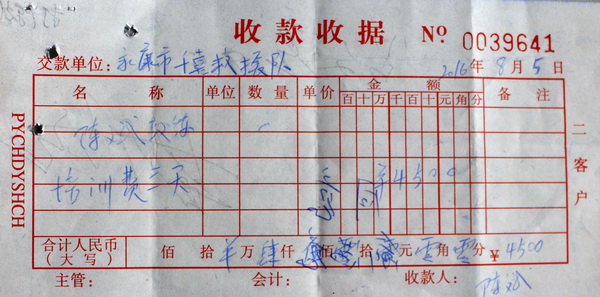 收款收据 Nº 0039641
交款单位：永康市千喜救援队 2016年8月5日
名称 单位 数量 单价 金额 备注
百十万千百十元角分
陈斌教练
培训费三天 ¥4500
合计人民币（大写） 佰拾万肆仟 佰 拾 元零角零分 ¥4500
主管： 会计： 收款人：陈斌
PYCHDYSHCH
二客户